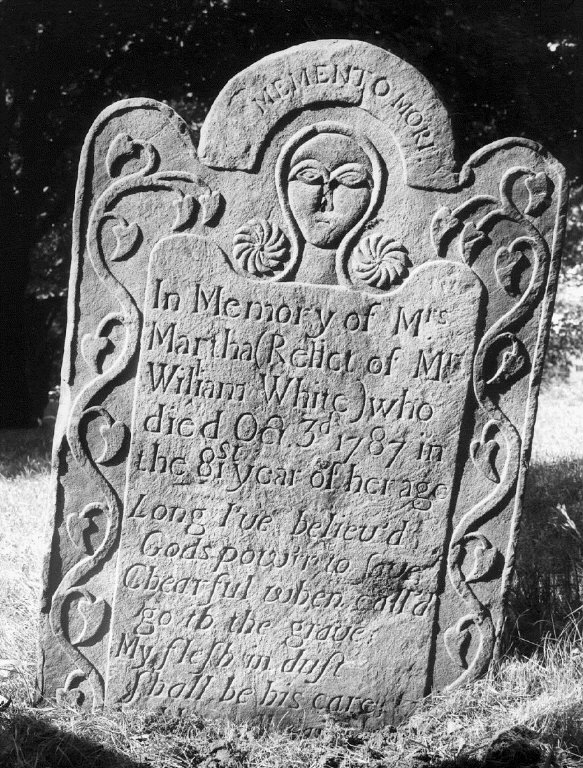 MEMENTO MORI
In Memory of Mrs
Martha (Relict of Mr
William White) who
died Oct. 3d 1787 in
the 81st year of her age
Long I've believ'd
Gods powir to save
Chearful when call'd
go to the grave:
My flesh in dust
shall be his care.